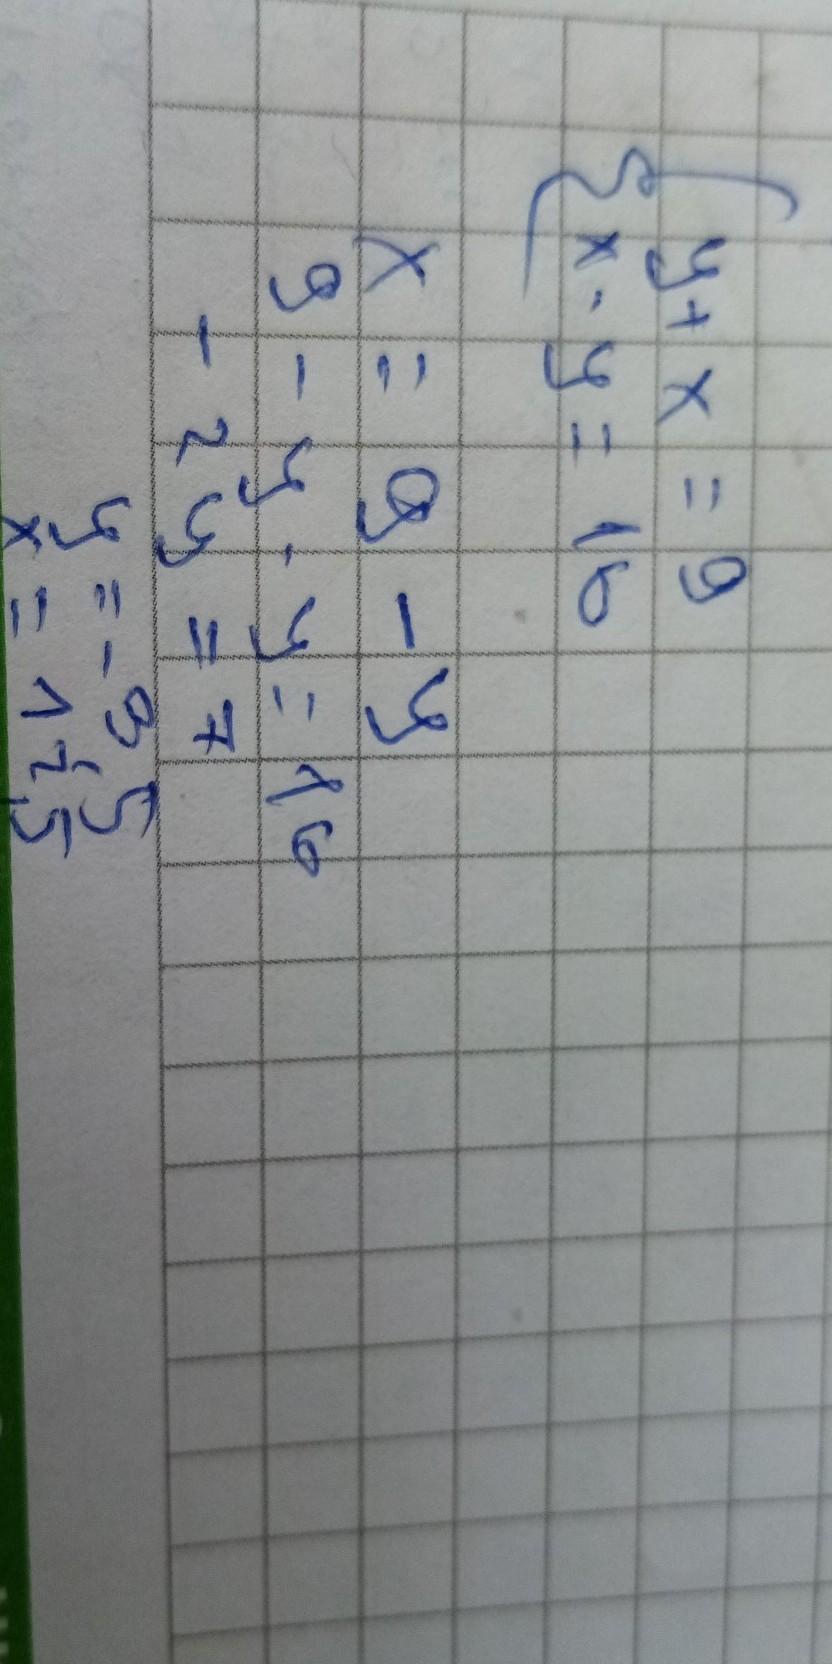 y + x = 9
x · y = 16
x = 9 - y
9 - y · y = 16
- 2y = 7
y = - 3,5
x = 12,5